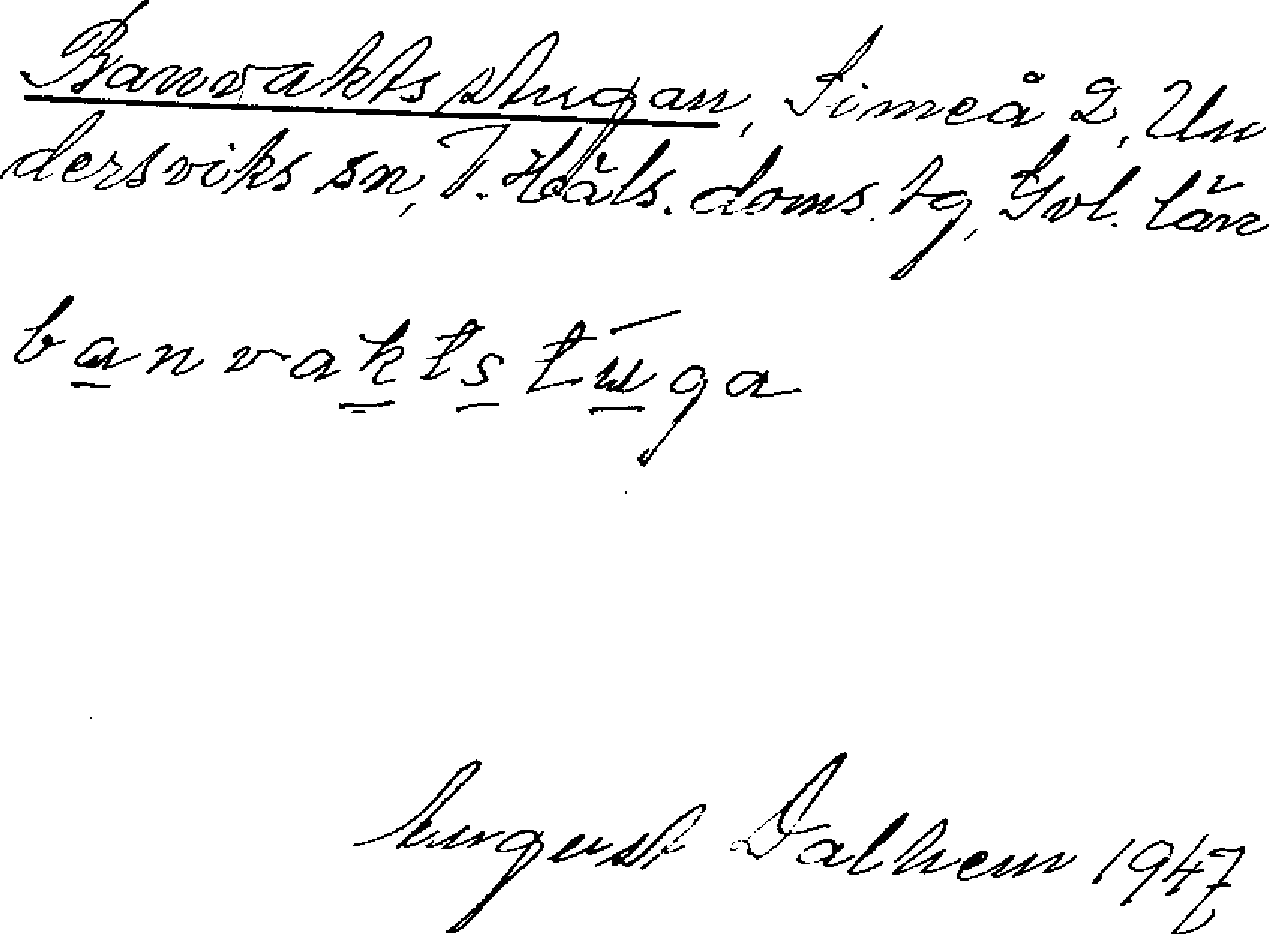 Banvaktsstugan, Simeå 2, Un
dersviks sn, V. Häls. doms. tg, Gvl. län
banvaktstúga
August Dalhem 1947